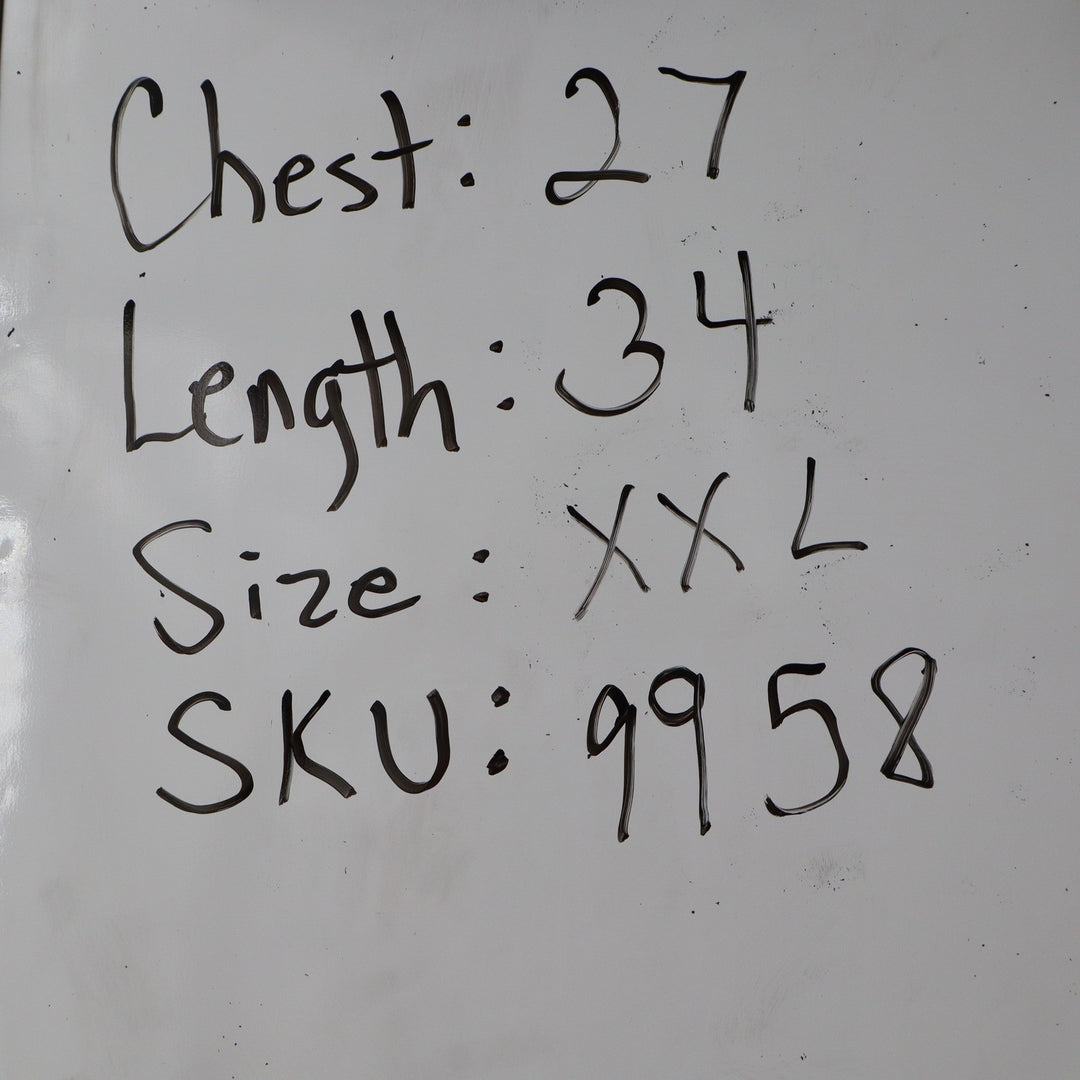 Chest: 27
Length: 34
Size: XXL
SKU: 9958